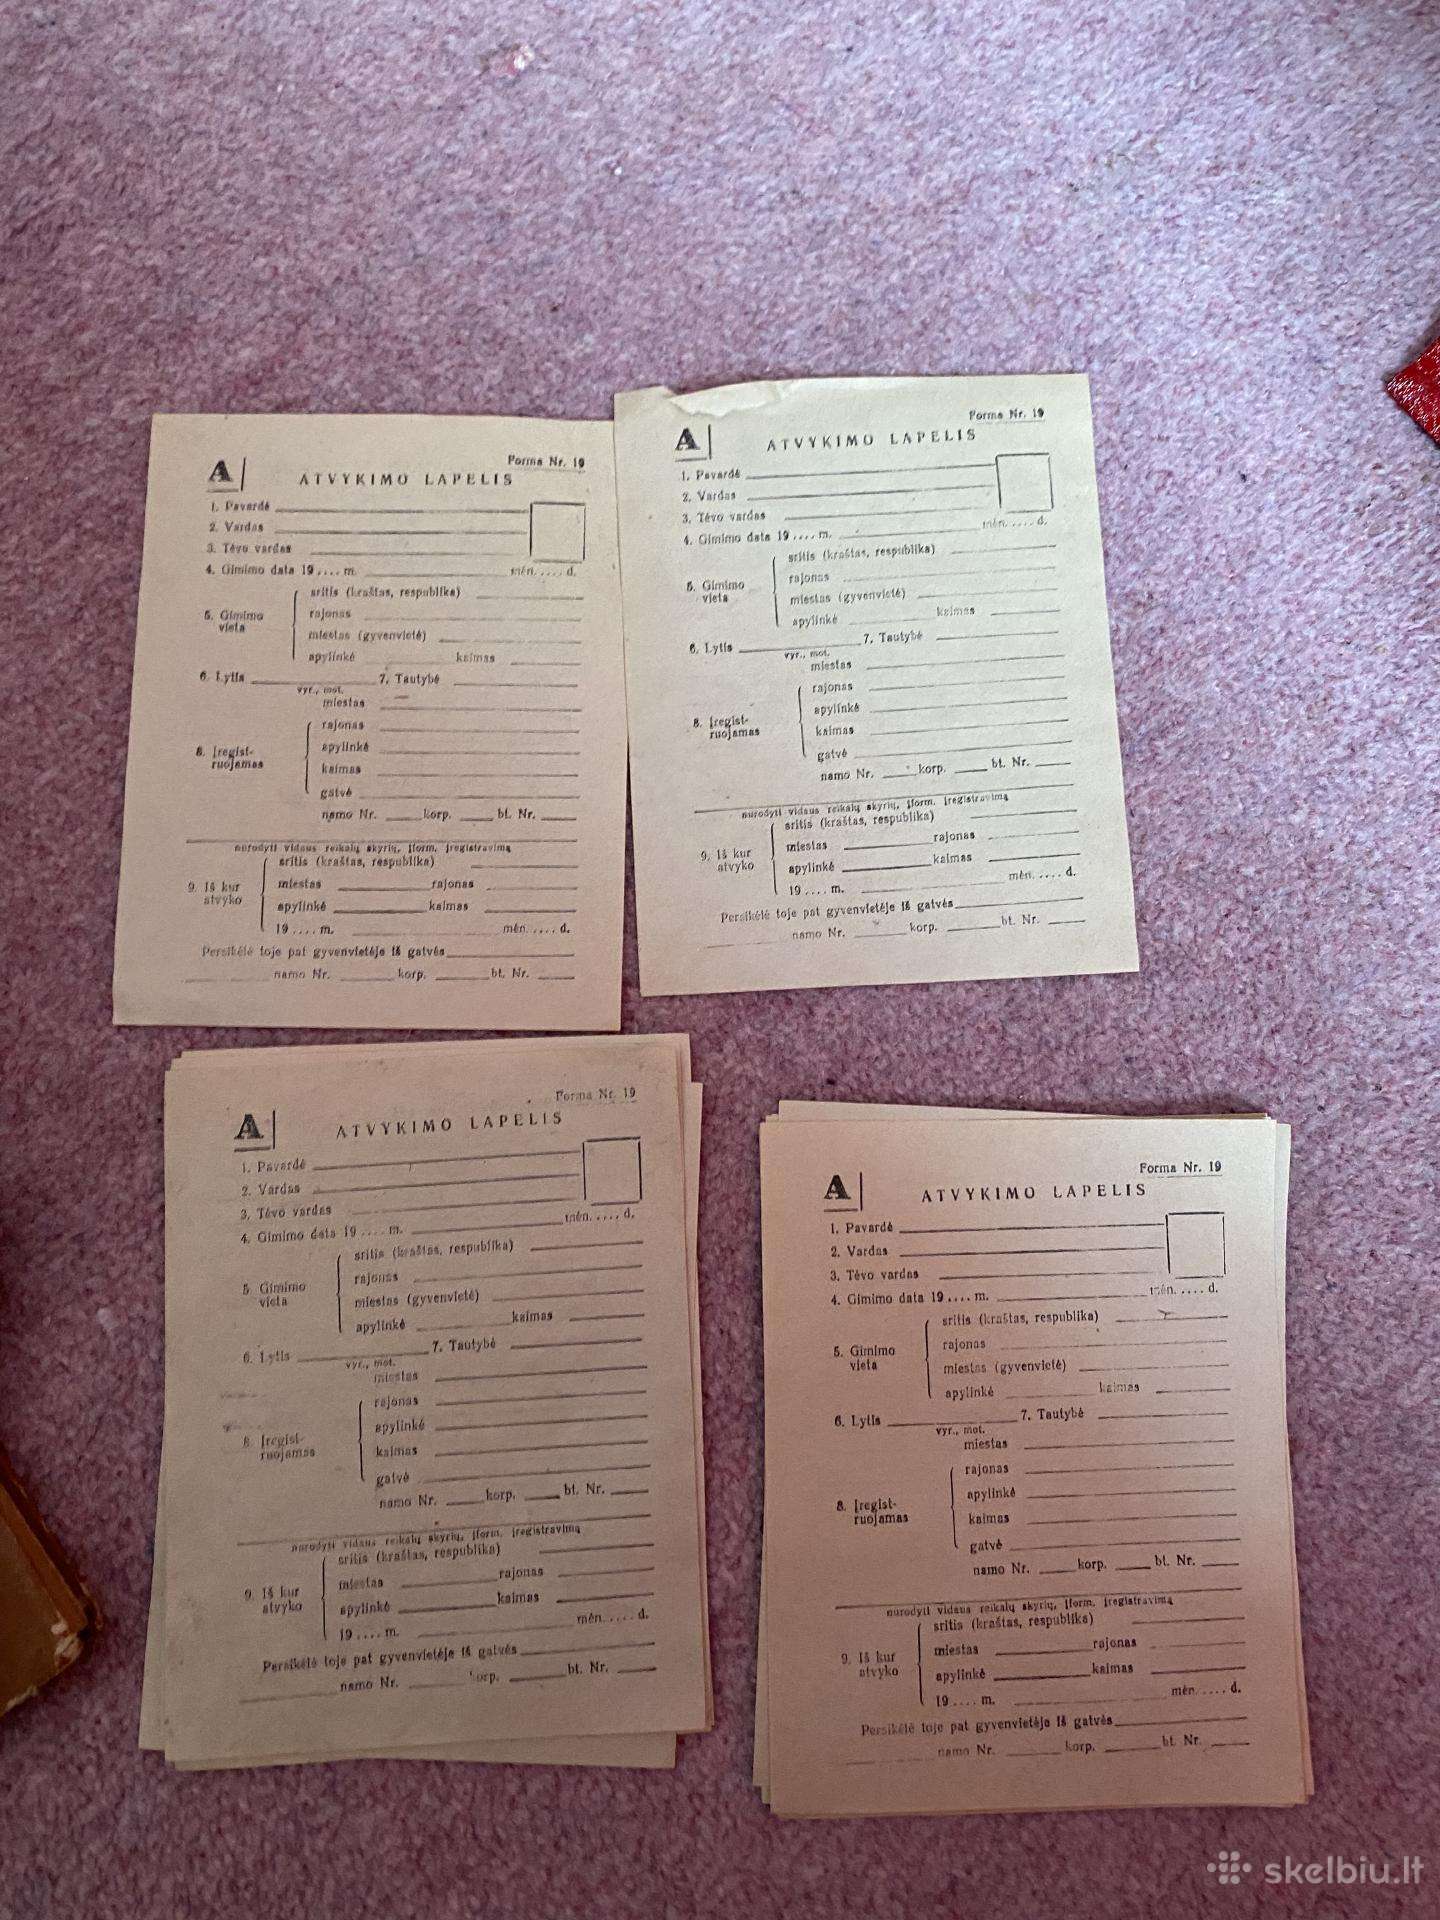 Forma Nr. 19
A
ATVYKIMO LAPELIS
1. Pavardė
2. Vardas
3. Tėvo vardas
4. Gimimo data 19.... m. mėn..... d.
5. Gimimo vieta
sritis (kraštas, respublika)
rajonas
miestas (gyvenvietė)
apylinkė kaimas
6. Lytis 7. Tautybė
vyr., mot.
miestas
8. Įregist-
ruojamas
rajonas
apylinkė
kaimas
gatvė
namo Nr. korp. bt. Nr.
nurodyti vidaus reikalų skyrių, įform. įregistravimą
9. Iš kur
atvyko
sritis (kraštas, respublika)
miestas rajonas
apylinkė kaimas
19.... m. mėn..... d.
Persikėlė toje pat gyvenvietėje iš gatvės
namo Nr. korp. bt. Nr.
Forma Nr. 19
A
ATVYKIMO LAPELIS
1. Pavardė
2. Vardas
3. Tėvo vardas
4. Gimimo data 19.... m. mėn..... d.
5. Gimimo
vieta
sritis (kraštas, respublika)
rajonas
miestas (gyvenvietė)
apylinkė kaimas
6. Lytis 7. Tautybė
vyr., mot.
miestas
8. Įregist-
ruojamas
rajonas
apylinkė
kaimas
gatvė
namo Nr. korp. bt. Nr.
nurodyti vidaus reikalų skyrių, įform. įregistravimą
9. Iš kur
atvyko
sritis (kraštas, respublika)
miestas rajonas
apylinkė kaimas
19.... m. mėn..... d.
Persikėlė toje pat gyvenvietėje iš gatvės
namo Nr. korp. bt. Nr.
Forma Nr. 19
A
ATVYKIMO LAPELIS
1. Pavardė
2. Vardas
3. Tėvo vardas
4. Gimimo data 19.... m. mėn..... d.
5 Gimimo
vieta
sritis (kraštas, respublika)
rajonas
miestas (gyvenvietė)
apylinkė kaimas
6. Lytis 7. Tautybė
vyr., mot.
miestas
8. Įregist-
ruojamas
rajonas
apylinkė
kaimas
gatvė
namo Nr. korp. bt. Nr.
nurodyti vidaus reikalų skyrių, įform. įregistravimą
9. Iš kur
atvyko
sritis (kraštas, respublika)
miestas rajonas
apylinkė kaimas
19.... m. mėn..... d.
Persikėlė toje pat gyvenvietėje iš gatvės
namo Nr. korp. bt. Nr.
Forma Nr. 19
A
ATVYKIMO LAPELIS
1. Pavardė
2. Vardas
3. Tėvo vardas
4. Gimimo data 19.... m. mėn..... d.
5. Gimimo
vieta
sritis (kraštas, respublika)
rajonas
miestas (gyvenvietė)
apylinkė kaimas
6. Lytis 7. Tautybė
vyr., mot.
miestas
8. Įregist-
ruojamas
rajonas
apylinkė
kaimas
gatvė
namo Nr. korp. bt. Nr.
nurodyti vidaus reikalų skyrių, įform. įregistravimą
9. Iš kur
atvyko
sritis (kraštas, respublika)
miestas rajonas
apylinkė kaimas
19.... m. mėn..... d.
Persikėlė toje pat gyvenvietėje iš gatvės
namo Nr. korp. bt. Nr.
skelbiu.lt